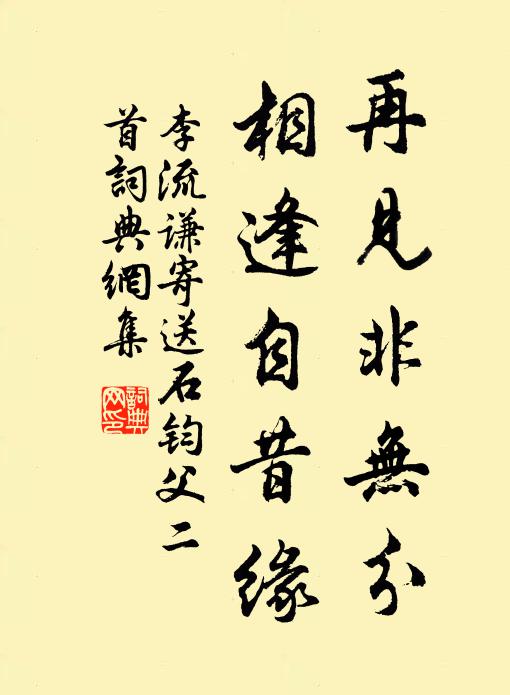 再見非無分
相逢自昔緣
李流謙寄送石鈞父二
首詞典網集
詞典
网印